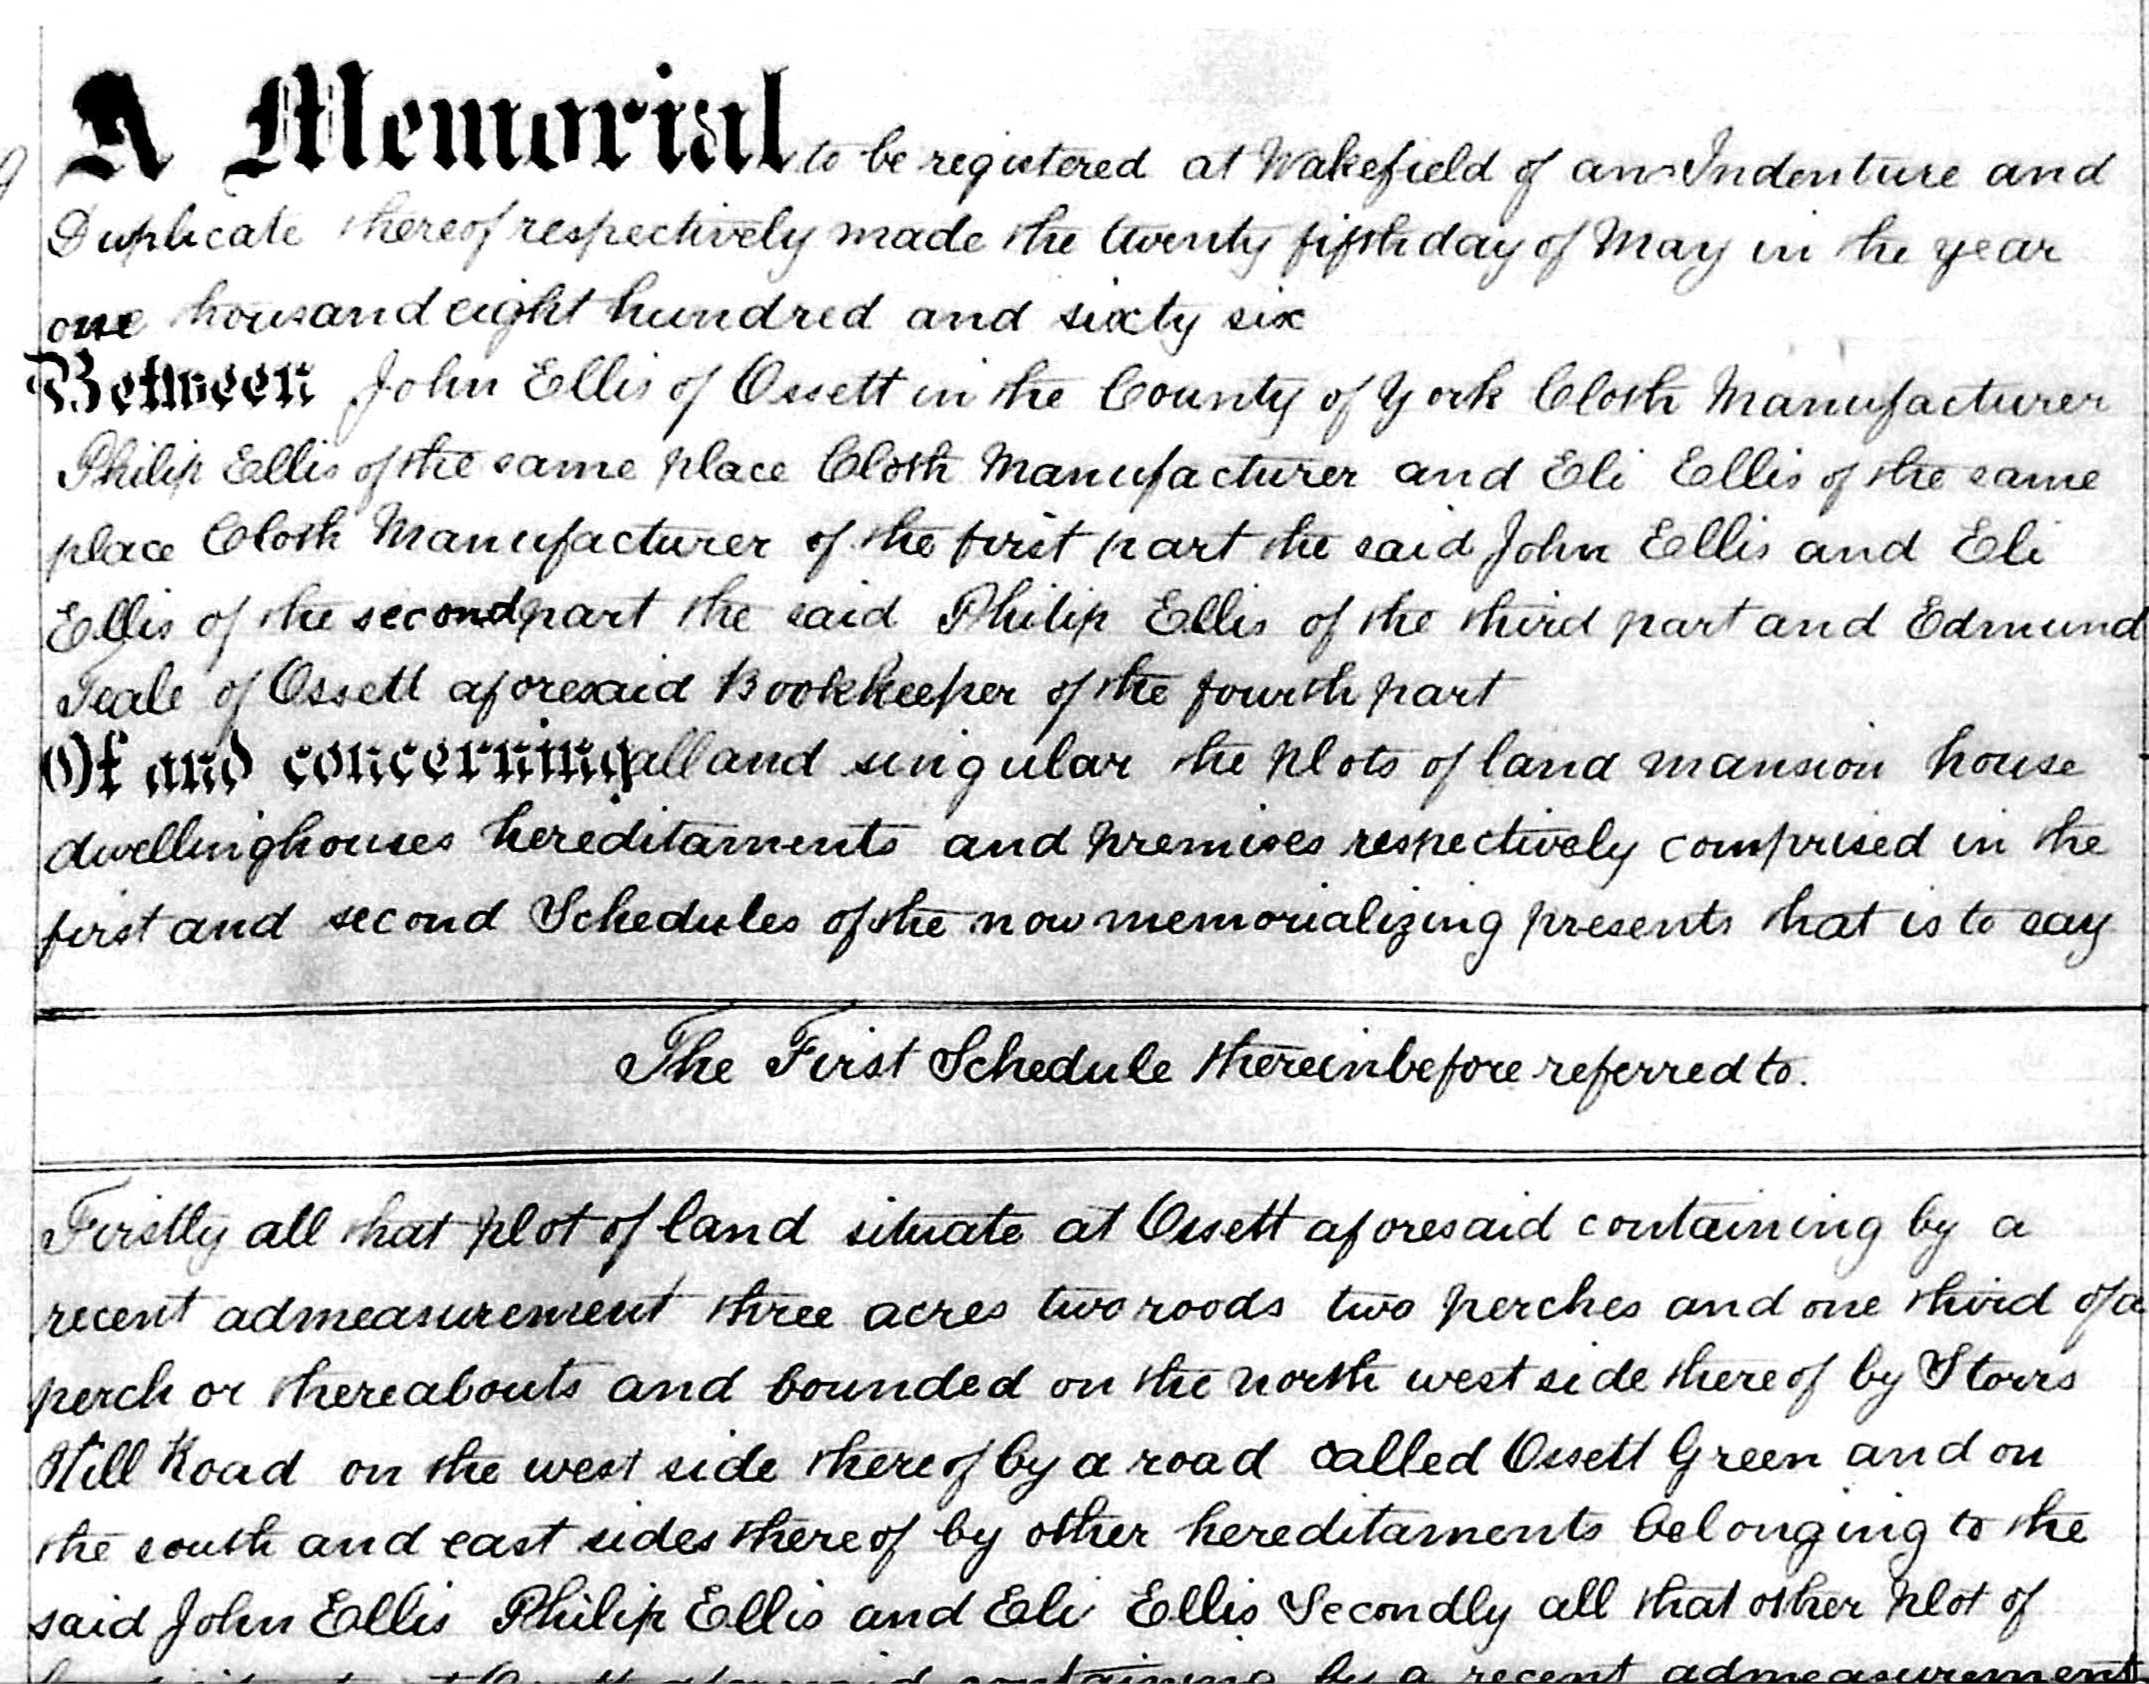 A Memorial to be registered at Wakefield of an Indenture and
Duplicate thereof respectively made the twenty fifth day of May in the year
one thousand eight hundred and sixty six
Between John Ellis of Ossett in the County of York Cloth Manufacturer
Philip Ellis of the same place Cloth Manufacturer and Eli Ellis of the same
place Cloth Manufacturer of the first part the said John Ellis and Eli
Ellis of the second part the said Philip Ellis of the third part and Edmund
Teale of Ossett aforesaid Bookkeeper of the fourth part
Of and concerning all and singular the plots of land mansion house
dwellinghouses hereditaments and premises respectively comprised in the
first and second Schedules of the now memorializing presents that is to say
The First Schedule thereinbefore referred to.
Firstly all that plot of land situate at Ossett aforesaid containing by a
recent admeasurement three acres two roods two perches and one third of a
perch or thereabouts and bounded on the north west side thereof by Storrs
Hill Road on the west side thereof by a road called Ossett Green and on
the south and east sides thereof by other hereditaments belonging to the
said John Ellis Philip Ellis and Eli Ellis Secondly all that other plot of
land situate at Ossett aforesaid containing by a recent admeasurement